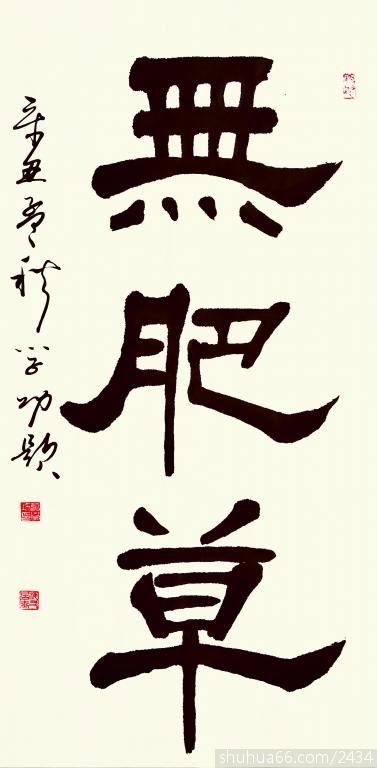 無肥草
辛丑孟秋学功題
shuhua66.com/2434